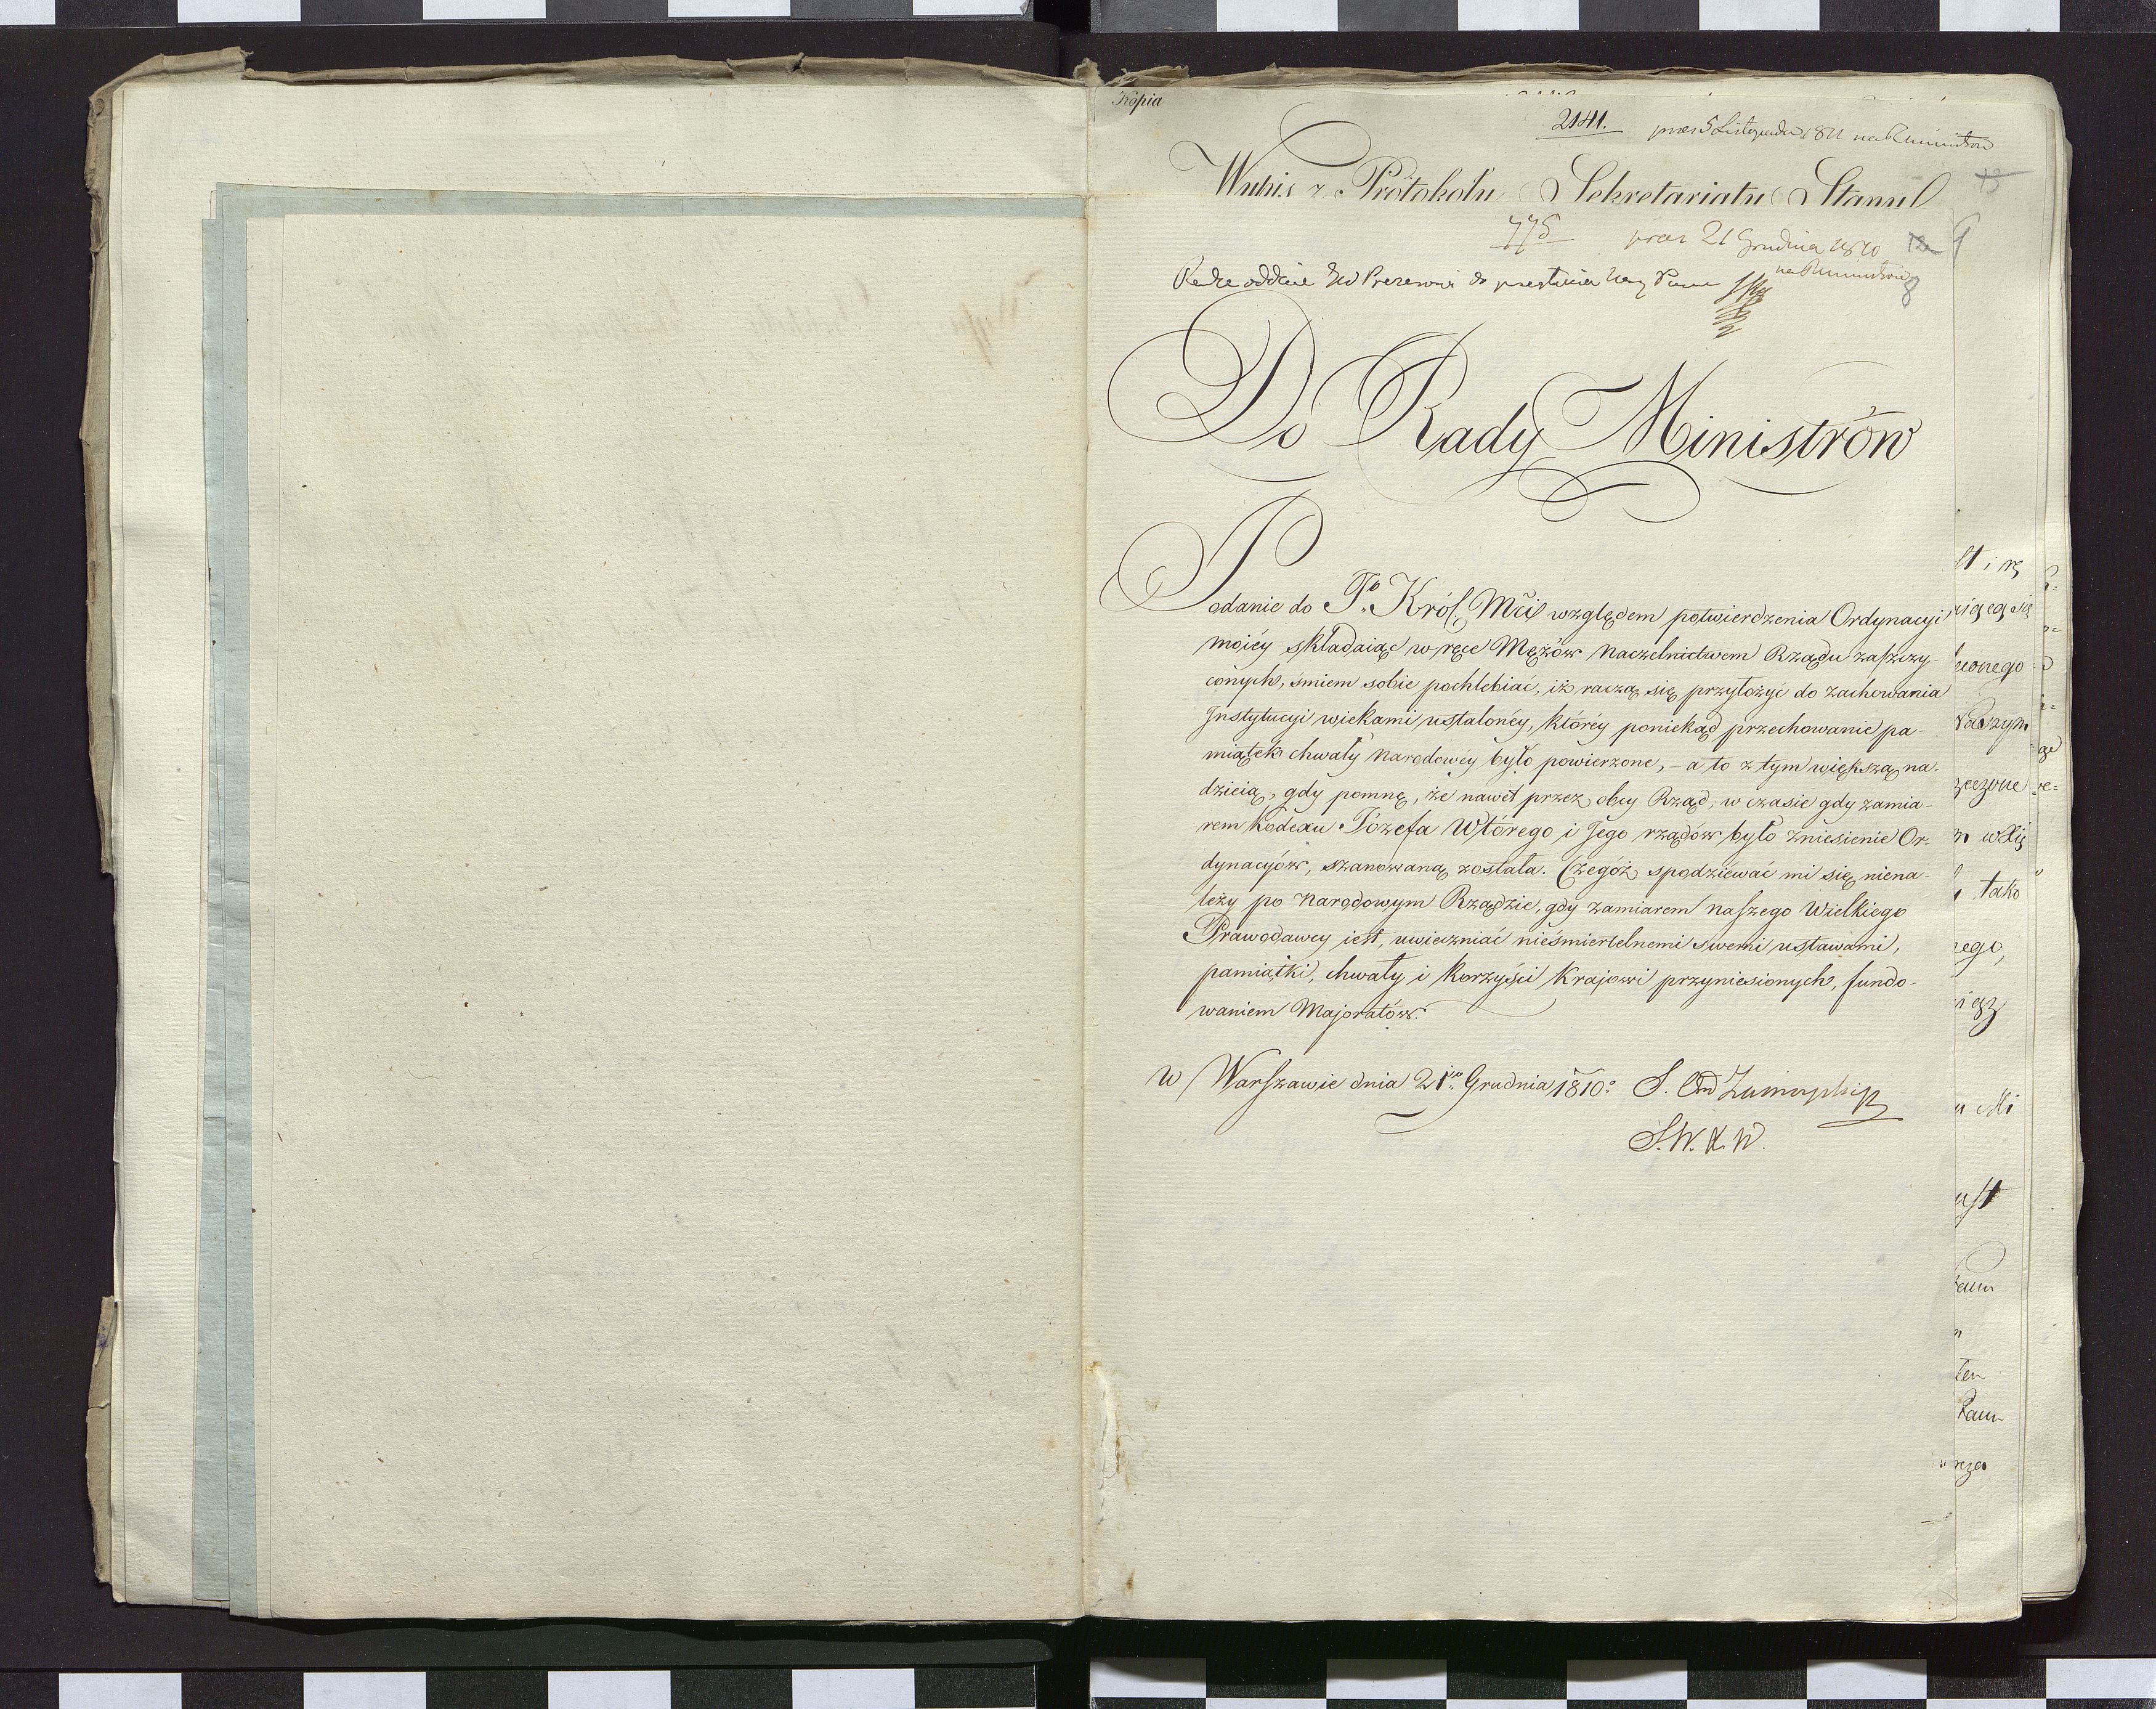 Kopia
2141. prez 5 Listopada 1811 na R Ministrów
Wypis z Protokółu Sekretariatu Stanu
13
775 prez 21 Grudnia 1810 12 9
na R Ministrów 8
oddaie do
Do Rady Ministrów
Podanie do Jo. Król. Mći względem potwierdzenia Ordynacyi
moiéy składaiąc w ręce Mężów Naczelnictwem Rządu zaszczy-
conych, śmiem sobie pochlebiać, iż raczą się przyłożyć do zachowania
Instytucyi wiekami ustalonéy, któréy poniekąd przechowanie pa-
miątek chwały Narodowéy było powierzone, - a to z tym większą na-
dzieią, gdy pomnę, że nawet przez obcy Rząd, w czasie gdy zamia-
rem Kodexu Józefa Wtórego i Jego rządów było zniesienie Or-
dynacyów, szanowaną została. Czegóż spodziéwać mi się niena-
leży po Narodowym Rządzie, gdy zamiarem naszego Wielkiego
Prawodawcy iest, uwieczniać nieśmiertelnemi swemi ustawami,
pamiątki, chwały i korzyści Krajowi przyniesionych, fundo-
waniem Majoratów.
w Warszawie dnia 21go Grudnia 1810o S. Ord Zamoyski
S.W.X.W.